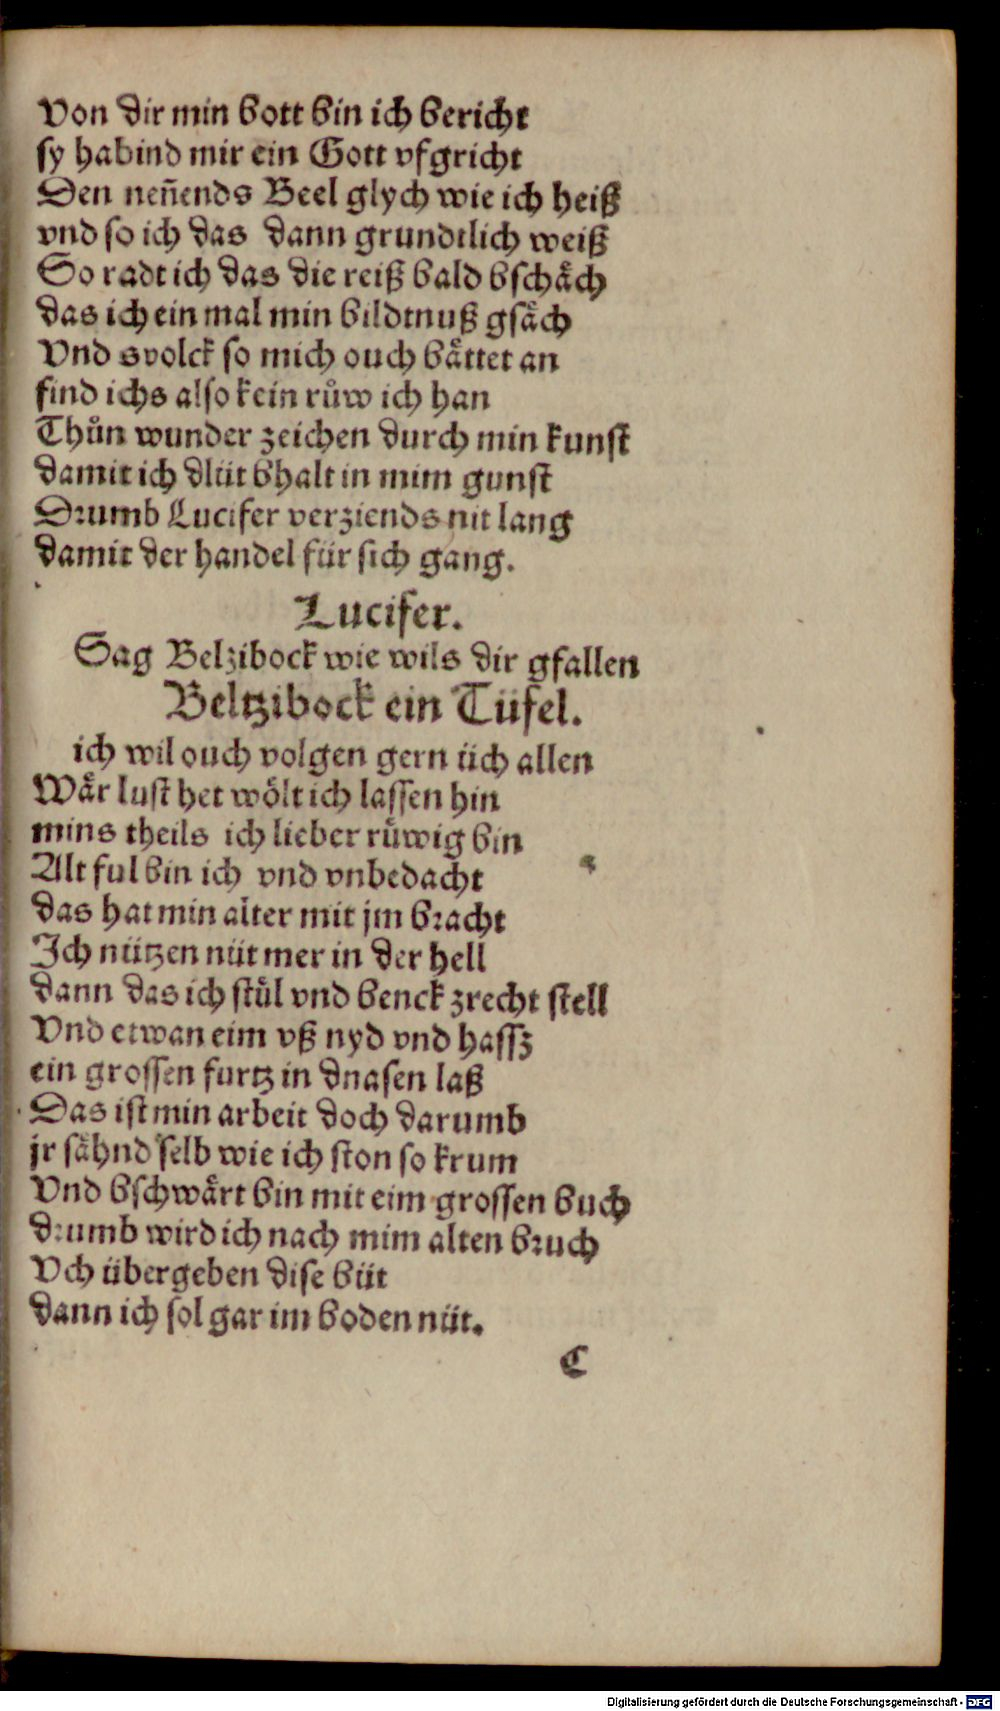 Von dir min bott bin ich bericht
sy habind mir ein Gott vfgricht
Den neñends Beel glych wie ich heiß
vnd so ich das dann grundtlich weiß
So radt ich das die reiß bald bschåch
das ich ein mal min bildtnuß gsåch
Vnd svolck so mich ouch båttet an
find ichs also kein růw ich han
Thůn wunder zeichen durch min kunst
damit ich dlüt bhalt in mim gunst
Drumb Lucifer verziends nit lang
damit der handel für sich gang.
Lucifer.
Sag Belzibock wie wils dir gfallen
Beltzibock ein Tüfel.
ich wil ouch volgen gern üch allen
Wår lust het wölt ich lassen hin
mins theils ich lieber rüwig bin
Alt ful bin ich vnd vnbedacht
das hat min alter mit jm bracht
Ich nützen nüt mer in der hell
dann das ich stůl vnd benck zrecht stell
Vnd etwan eim vß nyd vnd hassz
ein grossen furtz in dnasen laß
Das ist min arbeit doch darumb
jr såhnd selb wie ich ston so krum
Vnd bschwårt bin mit eim grossen buch
drumb wird ich nach mim alten bruch
Vch übergeben dise büt
dann ich sol gar im boden nüt.
C
Digitalisierung gefördert durch die Deutsche Forschungsgemeinschaft - DFG